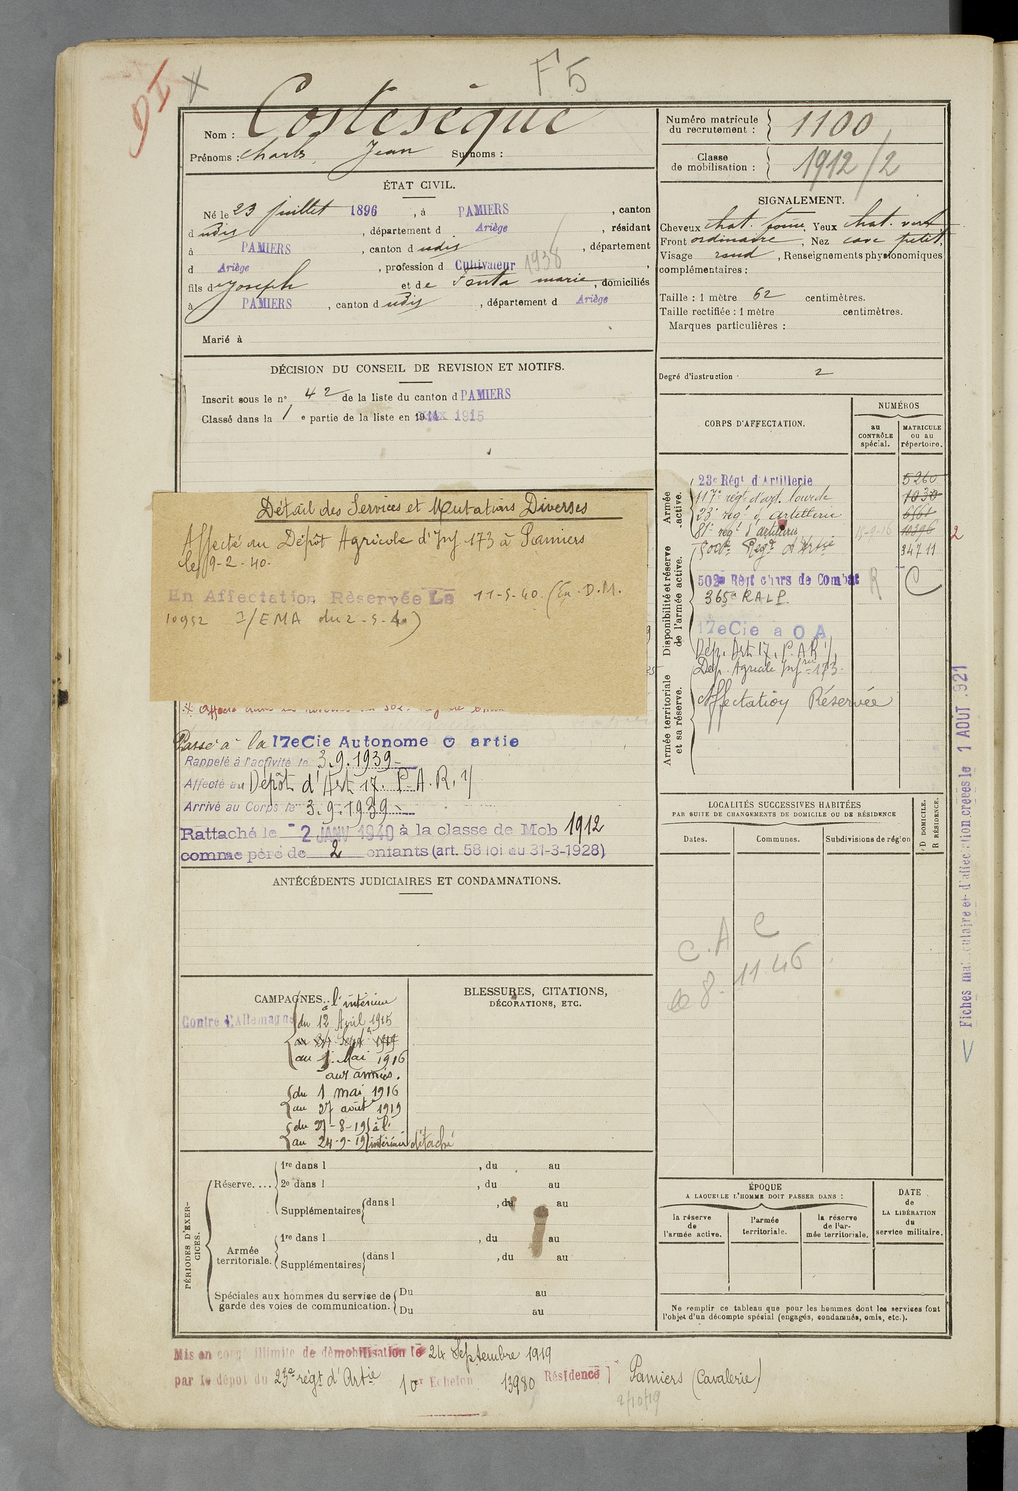 F5
91
X
Nom : Costesèque
Prénoms : Charles, Jean Surnoms :
Numéro matricule du recrutement : 1100
Classe de mobilisation : 1912/2
ÉTAT CIVIL.
Né le 23 juillet 1896, à PAMIERS, canton
d udis, département d Ariège, résidant
à PAMIERS, canton d udis, département
d Ariège, profession d Cultivateur 1938
fils de Joseph et de Fonta marie, domiciliés
à PAMIERS, canton d udis, département d Ariège
Marié à
SIGNALEMENT.
Cheveux chat. foncé, Yeux chat. vert
Front ordinaire, Nez cave petit,
Visage rond, Renseignements physionomiques
complémentaires :
Taille : 1 mètre 62 centimètres.
Taille rectifiée : 1 mètre centimètres.
Marques particulières :
Degré d'instruction : 2
DÉCISION DU CONSEIL DE REVISION ET MOTIFS.
Inscrit sous le n° 42 de la liste du canton d PAMIERS
Classé dans la 1 e partie de la liste en 1915
Détail des Services et Mutations Diverses
Affecté au Dépôt Agricole d'Inf 173 à Pamiers
le 9-2-40.
En Affectation Réservée Le 11-5-40 (En D.M.
10952 I/EMA du 2-5-40)
Passé à la 17eCie Autonome O artie
Rappelé à l'activité le 3.9.1939
Affecté au Dépôt d'Art 17. P.A.R. 17
Arrivé au Corps le 3.9.1939
Rattaché le 2 JANV 1940 à la classe de Mob 1912
comme père de 2 enfants (art. 58 loi du 31-3-1928)
CORPS D'AFFECTATION.
NUMÉROS
au CONTRÔLE spécial.
MATRICULE ou au répertoire.
Armée active.
23e Régt d'Artillerie 5260
117e rég. d'art. lourde 1030
33e rég. d'artillerie
81e rég. d'artillerie 15-9-16 10396 2
500e Régt d'Artie 34711
Disponibilité et réserve de l'armée active.
502e Régt chars de Combat R C
365e RALP.
17eCie a O A
Dép. Art 17. P.A.R 17
Dép. Agricole Infrie 173.
Armée territoriale et sa réserve.
Affectation Réservée
Fiches matriculaire et d'affectation créées le 1 AOUT 1921
LOCALITÉS SUCCESSIVES HABITÉES
PAR SUITE DE CHANGEMENTS DE DOMICILE OU DE RÉSIDENCE
Dates. Communes. Subdivisions de région D DOMICILE. R RÉSIDENCE.
C.A C
le 8. 11 46
ANTÉCÉDENTS JUDICIAIRES ET CONDAMNATIONS.
CAMPAGNES.
Contre l'Allemagne
à l'intérieur
du 12 Avril 1915
au 24 Sept 1919
au 1. Mai 1916
aux armées.
du 1 mai 1916
au 27 août 1919
du 27-8-19 à l'
au 24-9-19 intérieur détaché
BLESSURES, CITATIONS,
DÉCORATIONS, ETC.
PÉRIODES D'EXERCICES.
Réserve.... 1re dans l , du au
2e dans l , du au
Supplémentaires dans l , du au
Armée territoriale. 1re dans l , du au
Supplémentaires dans l , du au
Spéciales aux hommes du service de garde des voies de communication. Du au
Du au
ÉPOQUE
A LAQUELLE L'HOMME DOIT PASSER DANS :
la réserve de l'armée active.
l'armée territoriale.
la réserve de l'armée territoriale.
DATE de LA LIBÉRATION du service militaire.
Ne remplir ce tableau que pour les hommes dont les services font
l'objet d'un décompte spécial (engagés, condamnés, omis, etc.).
Mis en congé illimité de démobilisation le 24 Septembre 1919
par le dépôt du 23e régt d'Artie 10e Echelon 13980 Résidence Pamiers (Cavalerie)
2/10/19